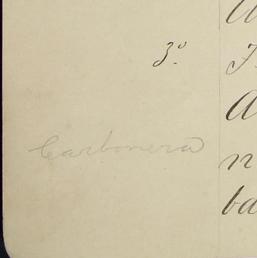 3º
Carbonera
n
ba